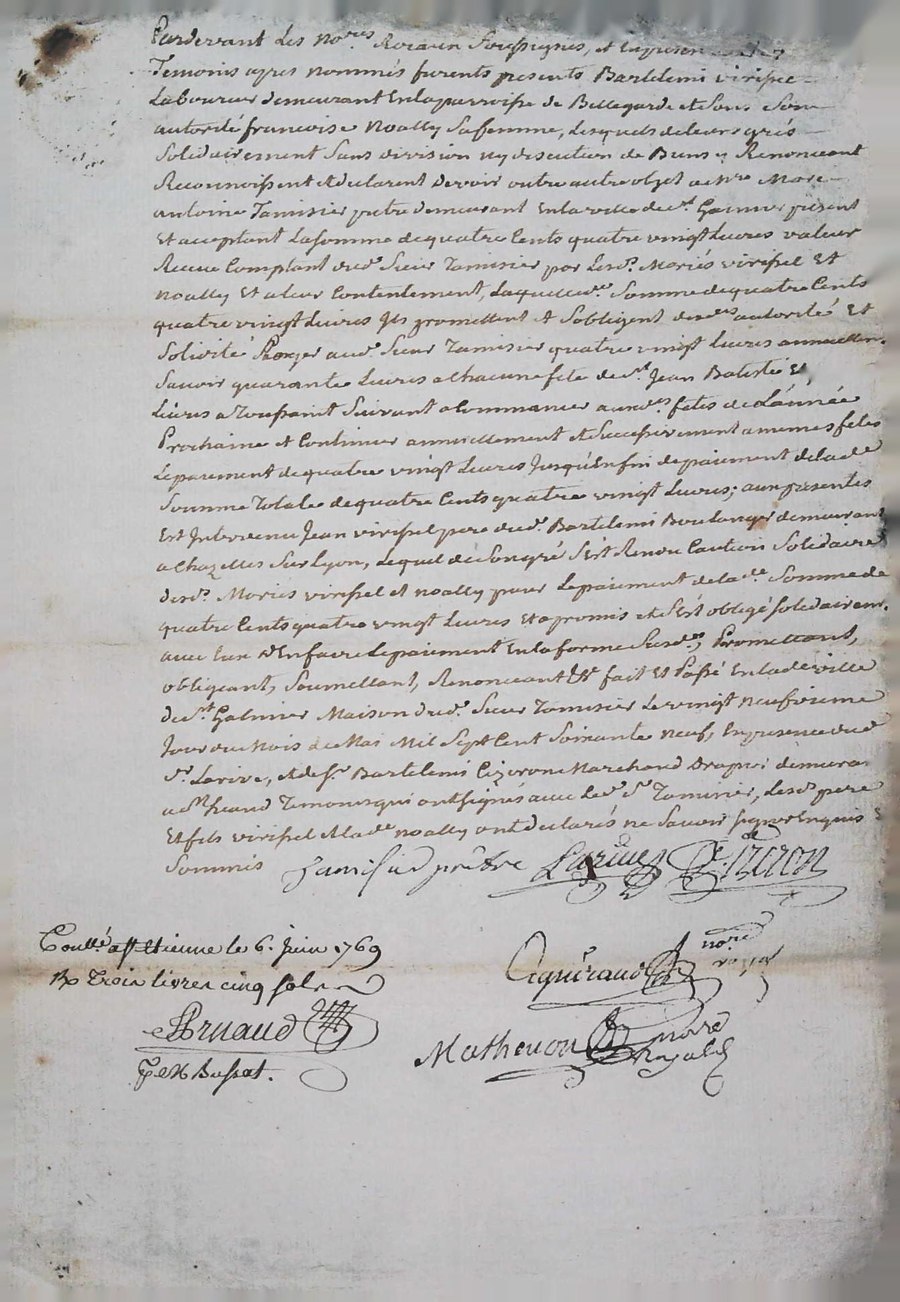 Pardevant Les No.res Royaux Soussignés, et En presence des
Temoins apres nommés furents presents Bartelemi virissel
Laboureur demeurant En la parroisse de Bellegarde et Sous Son
autorité francoise Noally Sa femme, Lesquels de leurs grés
Solidairement Sans division ny discution de Biens y Renonceant
Reconnoissent et declarent Devoir outre autre objet a M.re Marc
antoine Tamisier pretre demeurant En la ville de S.t Galmier present
Et acceptant La somme de quatre Cents quatre vingt Livres valeur
Recue Comptant dud. Sieur Tamisier par Lesd. Mariés virissel Et
Noally Et a leur Contentement, Laquelle d.e Somme de quatre Cents
quatre vingt Livres Ils promettent et S'obligent desd.es autorité Et
Solidité Payer aud. Sieur Tamisier quatre vingt Livres annuellem.
Savoir quarante Livres a Chacune fete de S.t Jean Batiste Et
Livres a Toussaint Suivant a Commancer auxd.es fetes de L'année
Prochaine et Continuer annuellement et Successivement a memes fetes
Le paiement de quatre vingt Livres Jusqu'En fin de paiement de lad.e
Somme Totale de quatre Cents quatre vingt Livres; aux presentes
Est Intervenu Jean virissel pere dud. Bartelemi Boulanger demeurant
a Chazelles Sur Lyon, Lequel de Son gré S'est Rendu Caution Solidaire
desd. Mariés virissel et Noally pour Le paiement de lad.e Somme de
quatre Cents quatre vingt Livres Et a promis et S'est obligé solidairem.
avec Eux d'En faire Le paiement En la forme Susd.e, Promettant,
obligeant, Soumettant, Renonceant &.a fait Et Passé En lad.e ville
de S.t Galmier Maison dud. Sieur Tamisier Le vingt neufvieme
Jour du Mois de Mai Mil Sept Cent Soixante neuf, En presence dud
S.r Larive, et de S.r Bartelemi Cizeron Marchand Drapier demeurant
Temoins qui ont signés avec Led. S.r Tamisier, Lesd. pere
Et fils virissel et lad.e Noally ont declarés ne Savoir signer Enquis Et
Sommés
Tamisier prêtre Larive Cizeron
Contllé a St Etienne le 6. juin 1769
Rx Trois livres cinq sols
Arnaud
Aguiraud nore royal
Matheuon nore Royal